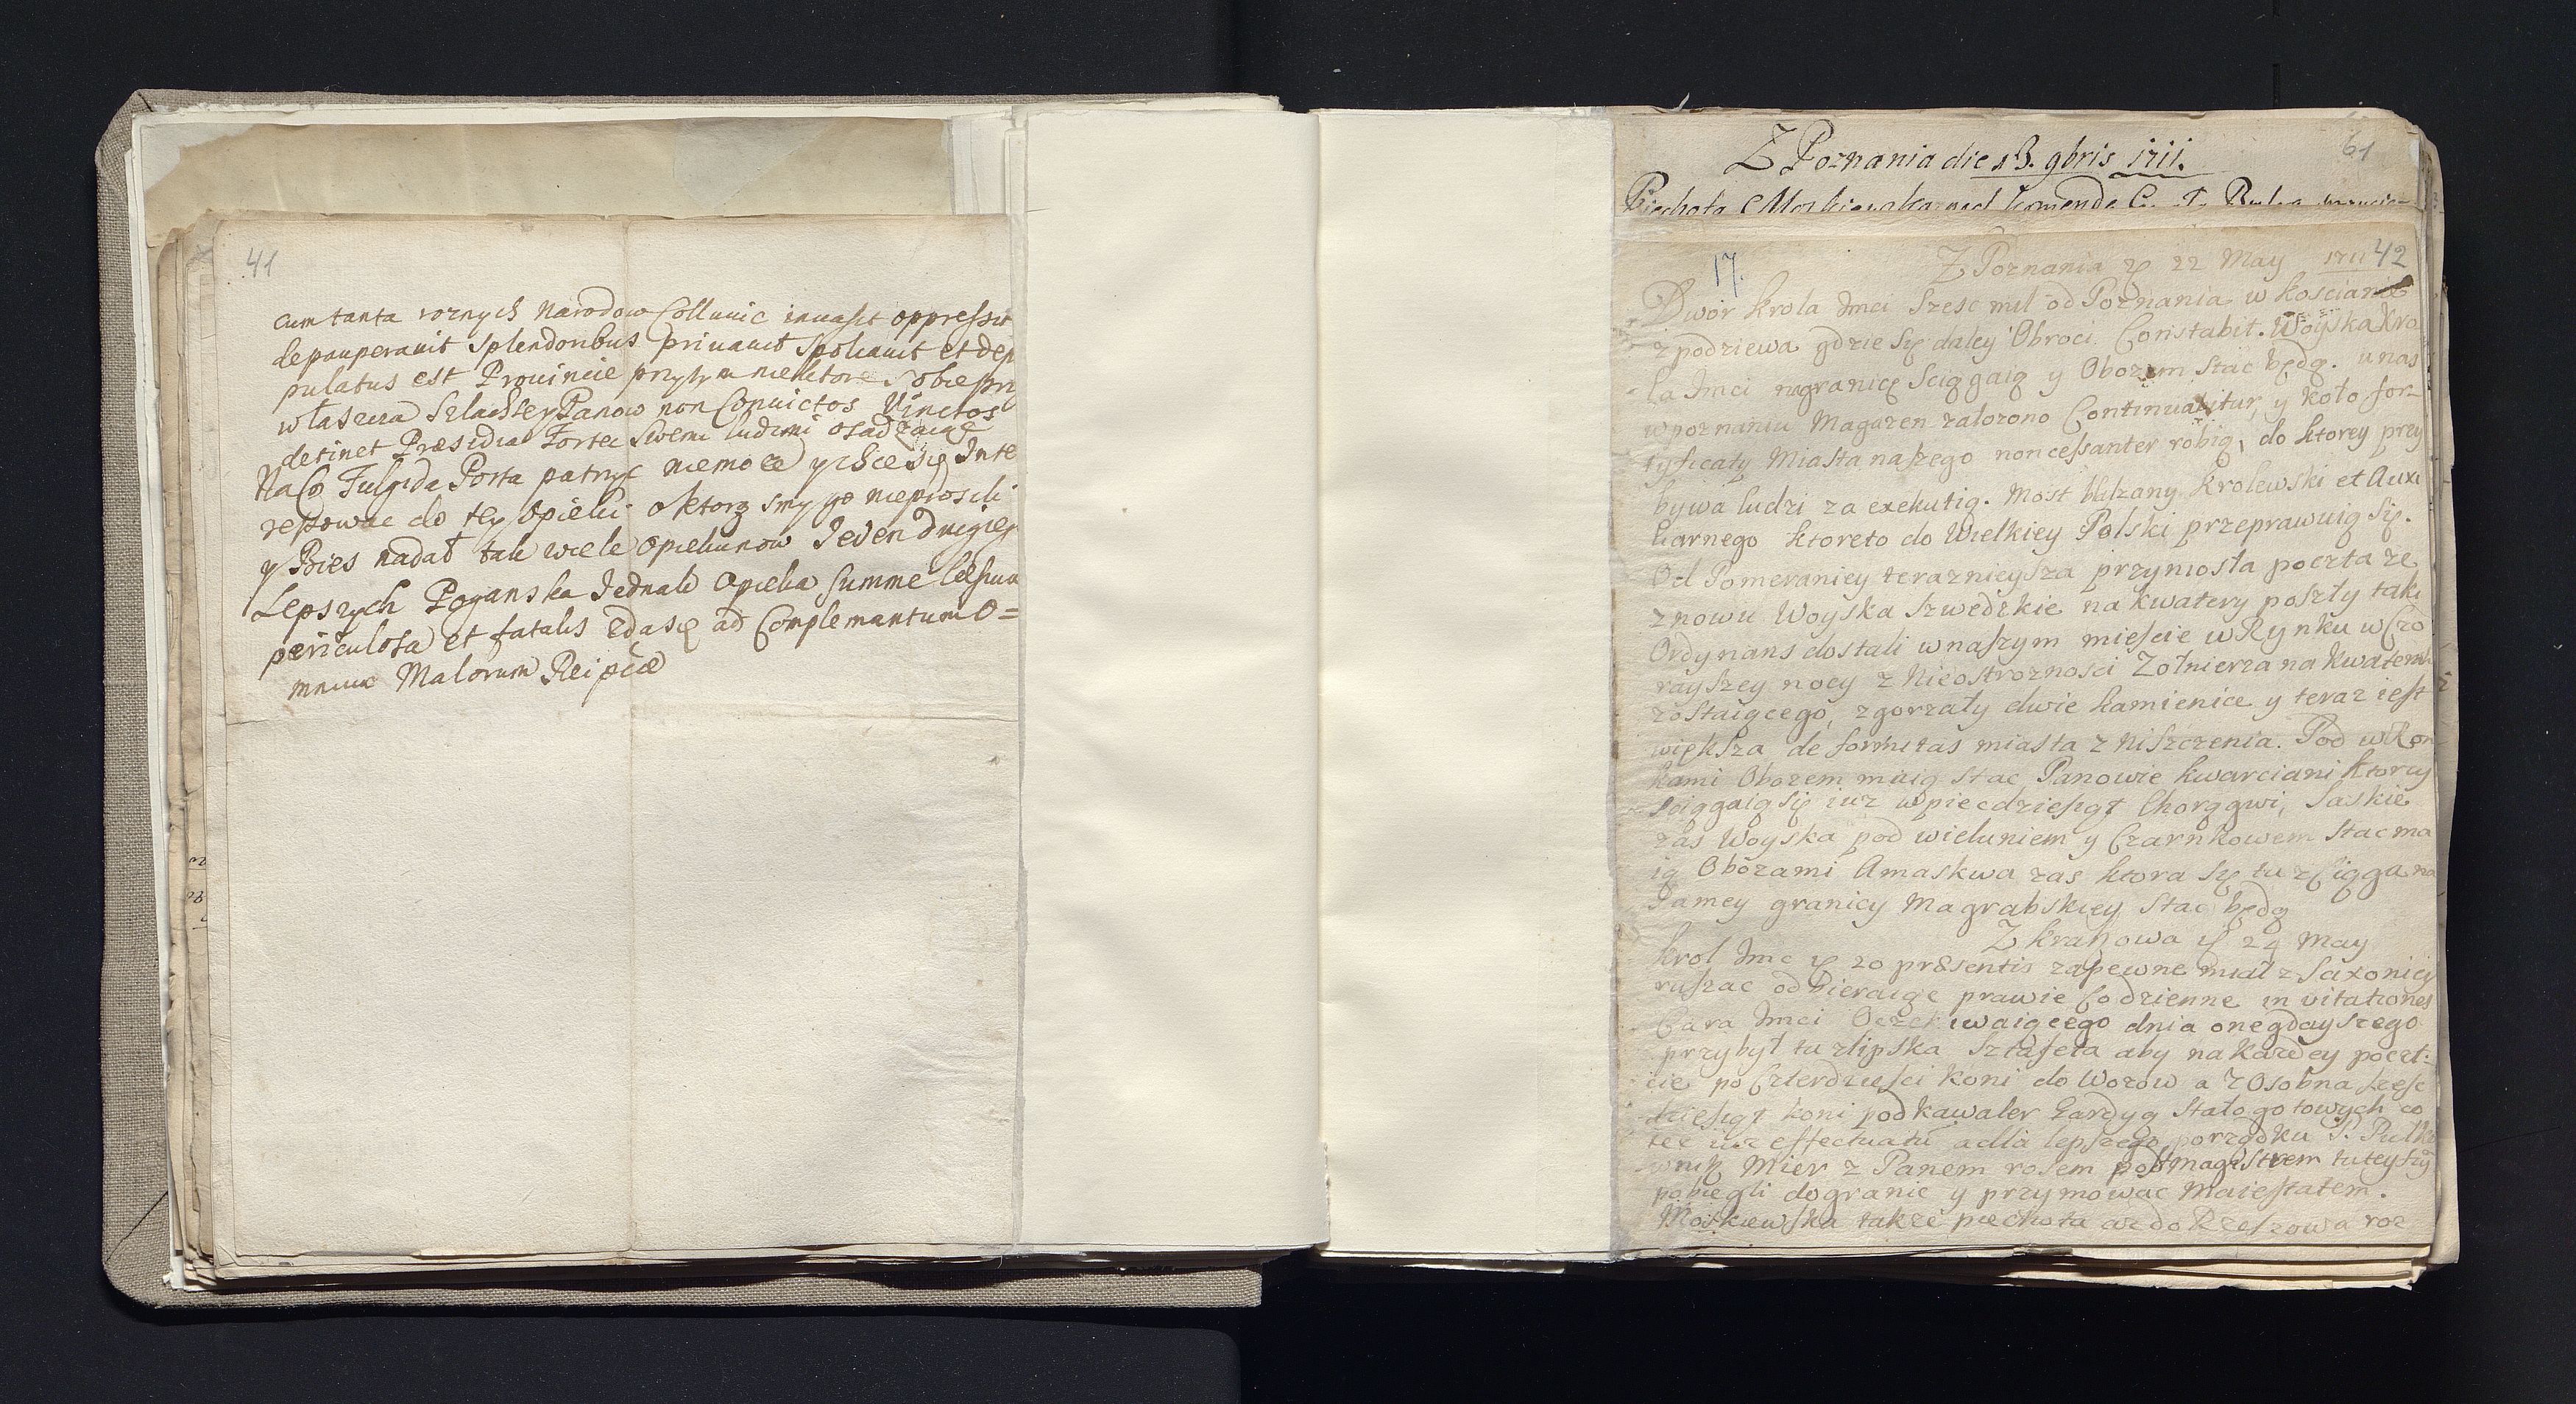 41
cum tanta roznych Narodow Colluvie invasit oppressit
depauperavit splendoribus privavit spoliavit et depo
pulatus est Provincie przytym niektore sobie przy
własza Szlachtey Panow non Convictos Vinctos
detinet Præsidia Fortec Swemi ludzmi osadzaiąc
Na co Fulgida Porta patrzyc niemoze y chce się Inte
ressowac do tey Opieki o ktorą smy go nieprosili
y Bies nadał tak wiele opiekunow Jeden drugiego
Lepszych Poganska Jednak Opieka summe
periculosa et fatalis zda się ad Complemantum O=
mnium Malorum Reipcæ
Z Poznania die 13. 9bris 1711.
61
Piechota Moskiewska pod komendą
17.
Z Poznania 22 May 1711 42
Dwor krola Jmci Szesc mil od Poznania w koscianie
zpodziewa gdzie się daley Obroci. Constabit. Woyska kro
la Jmci nagranicę Sciągaią y Obozem stac będą. unas
wpoznaniu Magazen zalozono Continuabitur, y koło for
tyficaty Miasta naszego noncessanter robią, do ktorey przy
bywa ludzi za exekutią. Most blizany krolewski et Auxi
liarnego ktoreto do Wielkiey Polski przeprawuią się.
Od Pomeraniey teraznieysza przyniosła poczta ze
znowu Woyska szwedzkie na kwatery poszły taki
Ordynans dostali w naszym miescie w Rynku wczo
rayszey nocy z Nieostroznosci Zołnierza na kwaterze
zostaiącego, zgorzały dwie kamienice y teraz iest
większa deformitas miasta z Niszczenia. Pod wRon
kami Obozem maią stac Panowie kwarciani ktorzy
sciągaią się iuz w piecdziesiąt Chorągwi, Saskie
zas Woyska pod wieluniem y Czarnkowem stac ma
ią Obozami Amaskwa zas ktora się tu zciąga na
samey granicy Magrabskiey Stac będą
Z krakowa 24 May
krol Jmc 20 præsentis zapewne miał z Saxoniey
ruszac odbieraiąc prawie Codzienne invitationes
Cara Jmci Oczekiwaiącego dnia onegdayszego
przybył tu zlipska Sztafeta aby na kazdey poczt=
cie po Czterdziesci koni do Wozow a z Osobna szesc
dziesiąt koni pod kawaler Gardyą stało gotowych co
tez iuz effectuatu adla lepszego porządku P. Pułko
wnik Mier z Panem rosem pobtmagistrem tuteyszy
pobiegli dogranic y przymowac Maiestatem.
Moskiewska takze piechota az do Rzeszowa roz